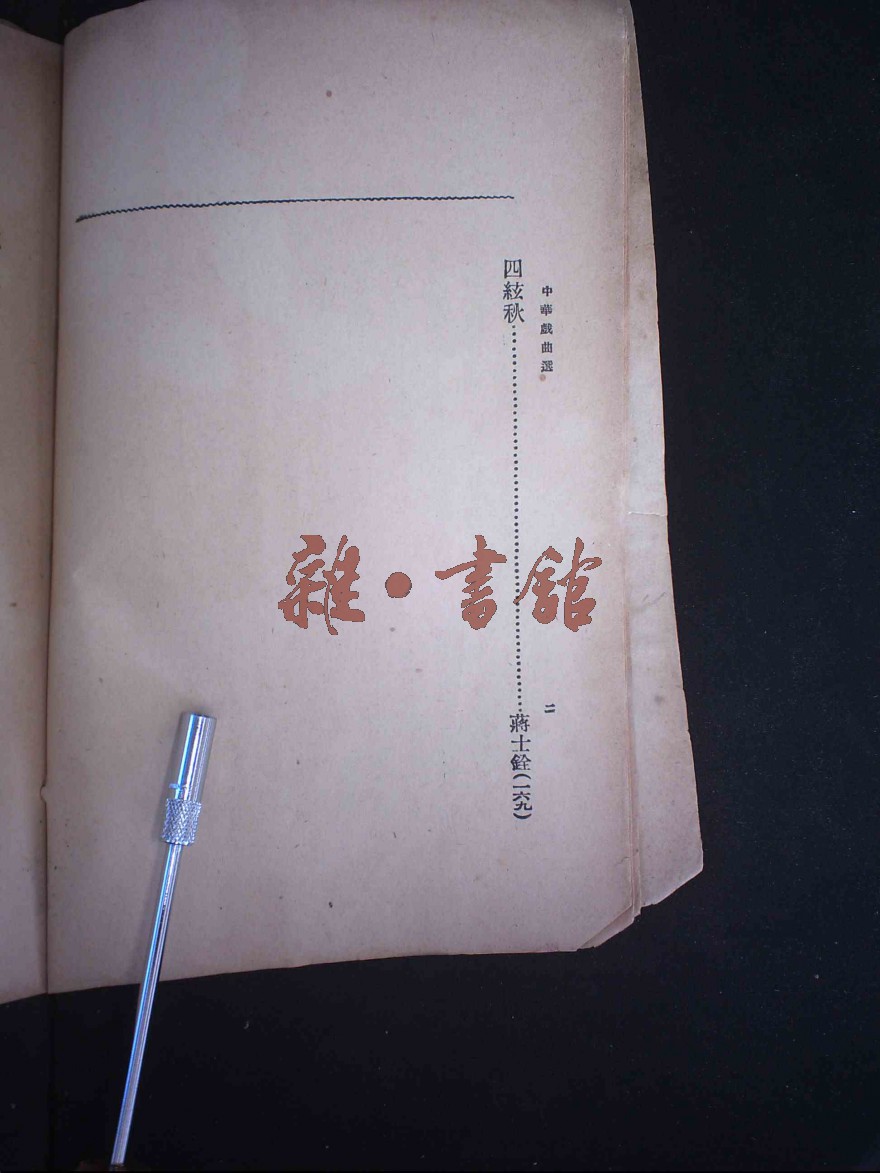 中華戲曲選
二
四絃秋……………………………………蔣士銓(一六九)
雜·書館